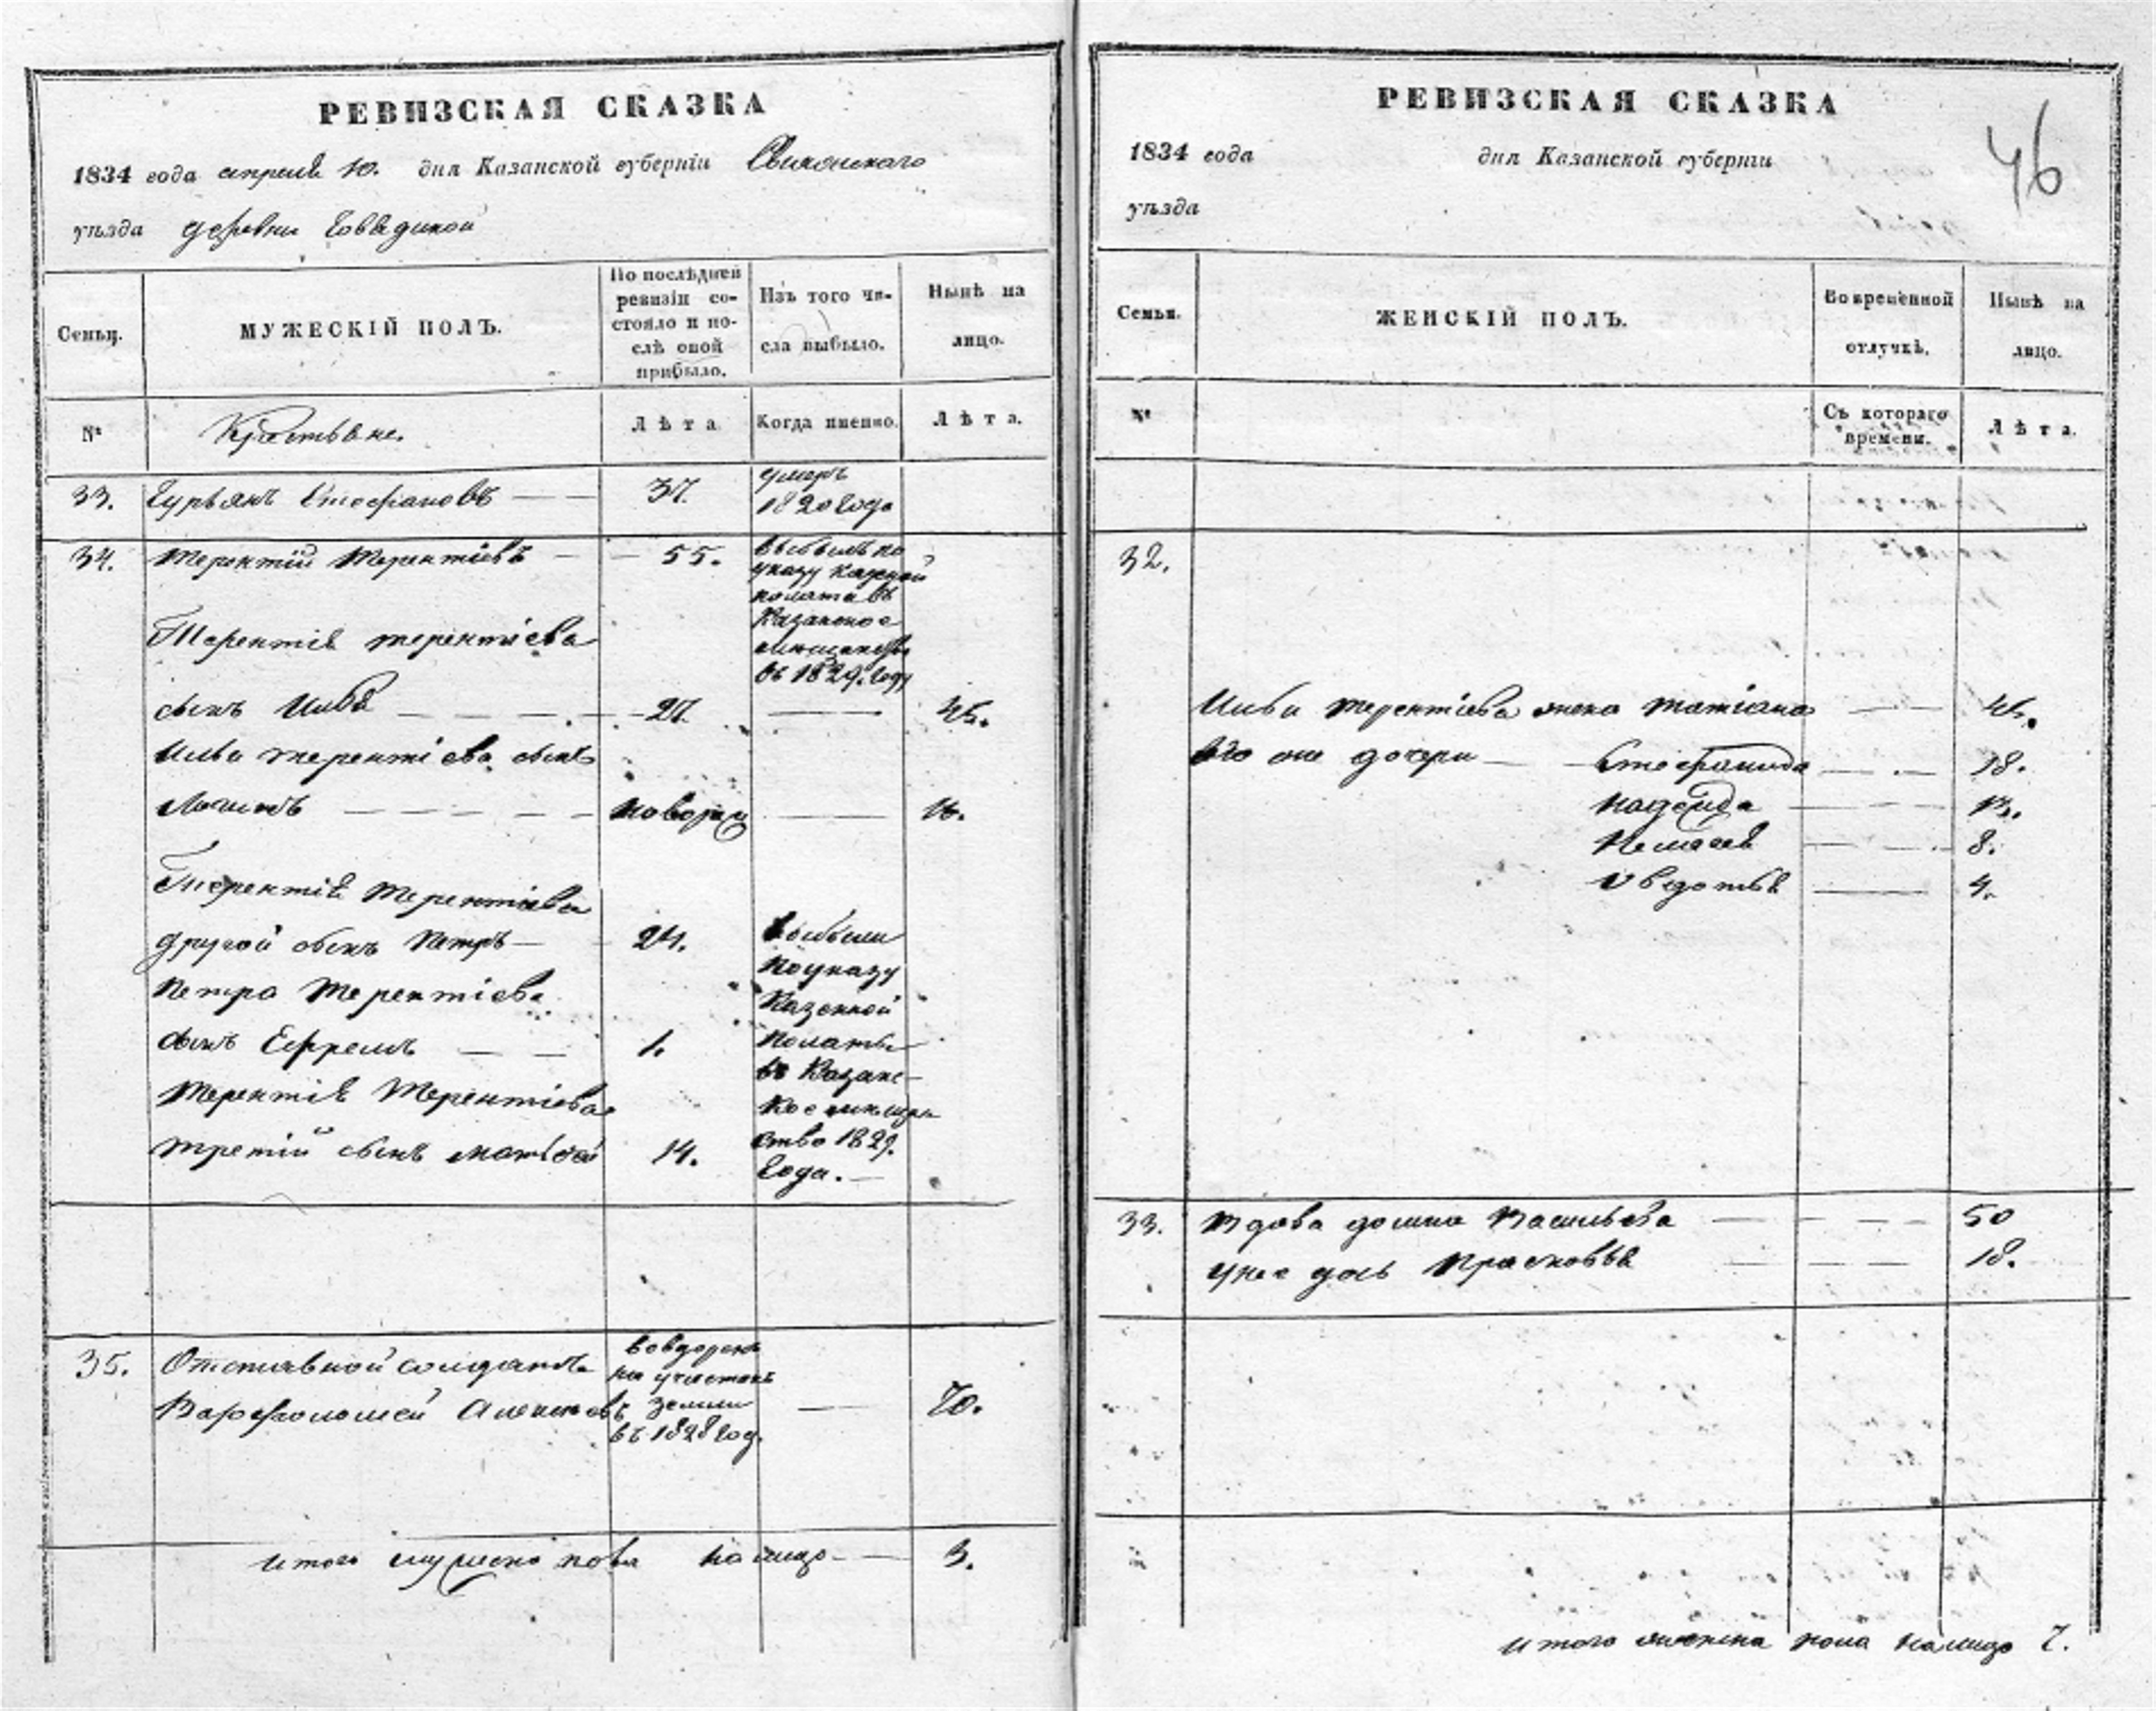 РЕВИЗСКАЯ СКАЗКА
1834 года апреля 10. дня Казанской губерніи
уѣзда деревни
Семьи.
МУЖЕСКІЙ ПОЛЪ.
По послѣдней ревизіи со-
стояло и по-
слѣ оной
прибыло.
Изъ того чи-
сла выбыло.
Нынѣ на
лицо.
№
Крестьяне.
Лѣта.
Когда именно.
Лѣта.
33. Гурьянъ Стефановъ 37. умеръ
1820 года
34. Терентій Терентіевъ 55. выбылъ по
указу казеной
полаты въ
Казанское
Терентія терентіева
въ 1829. году
сынъ Илья 27. 45.
Ильи терентіева сынъ
Логинъ новорож 16.
Терентія Терентіева
другой сынъ Петръ 24. выбыли
по указу
Петра Терентіева Казенной
сынъ Ефремъ 1. Полаты
въ Казанс-
Терентія Терентіева кое
третій сынъ матвей 14. ство 1829.
года.
35. Отставной солдатъ
Варфоломей Алексеевъ 70.
водворенъ
на участокъ
земли
въ 1828 год.
итого мужеска пола на лицо 3.
РЕВИЗСКАЯ СКАЗКА
46
1834 года дня Казанской губерніи
уѣзда
Семьи.
ЖЕНСКІЙ ПОЛЪ.
Во временной
отлучкѣ.
Нынѣ на
лицо.
№
Съ котораго
времени.
Лѣта.
32.
Ильи терентіева жена татіана
Его же дочери Стефанида 18.
надежда
Пелагея 8.
Овдотья 4.
33. Вдова домна Васильева 50
у нее дочь Прасковья 18.
итого женска пола налицо 7.